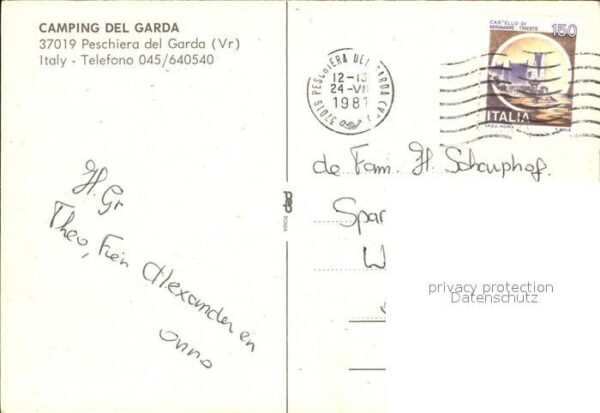 CAMPING DEL GARDA
37019 Peschiera del Garda (Vr)
Italy - Telefono 045/640540
37019 PESCHIERA DEL GARDA (VR)
12-13
24-VII
1981
CASTELLO DI
MIRAMARE - TRIESTE
150
ITALIA
de Fam. H. Schouphof.
Spar
W
H. Gr
Theo, Fien Alexander en
Onno
ROMA
privacy protection
Datenschutz